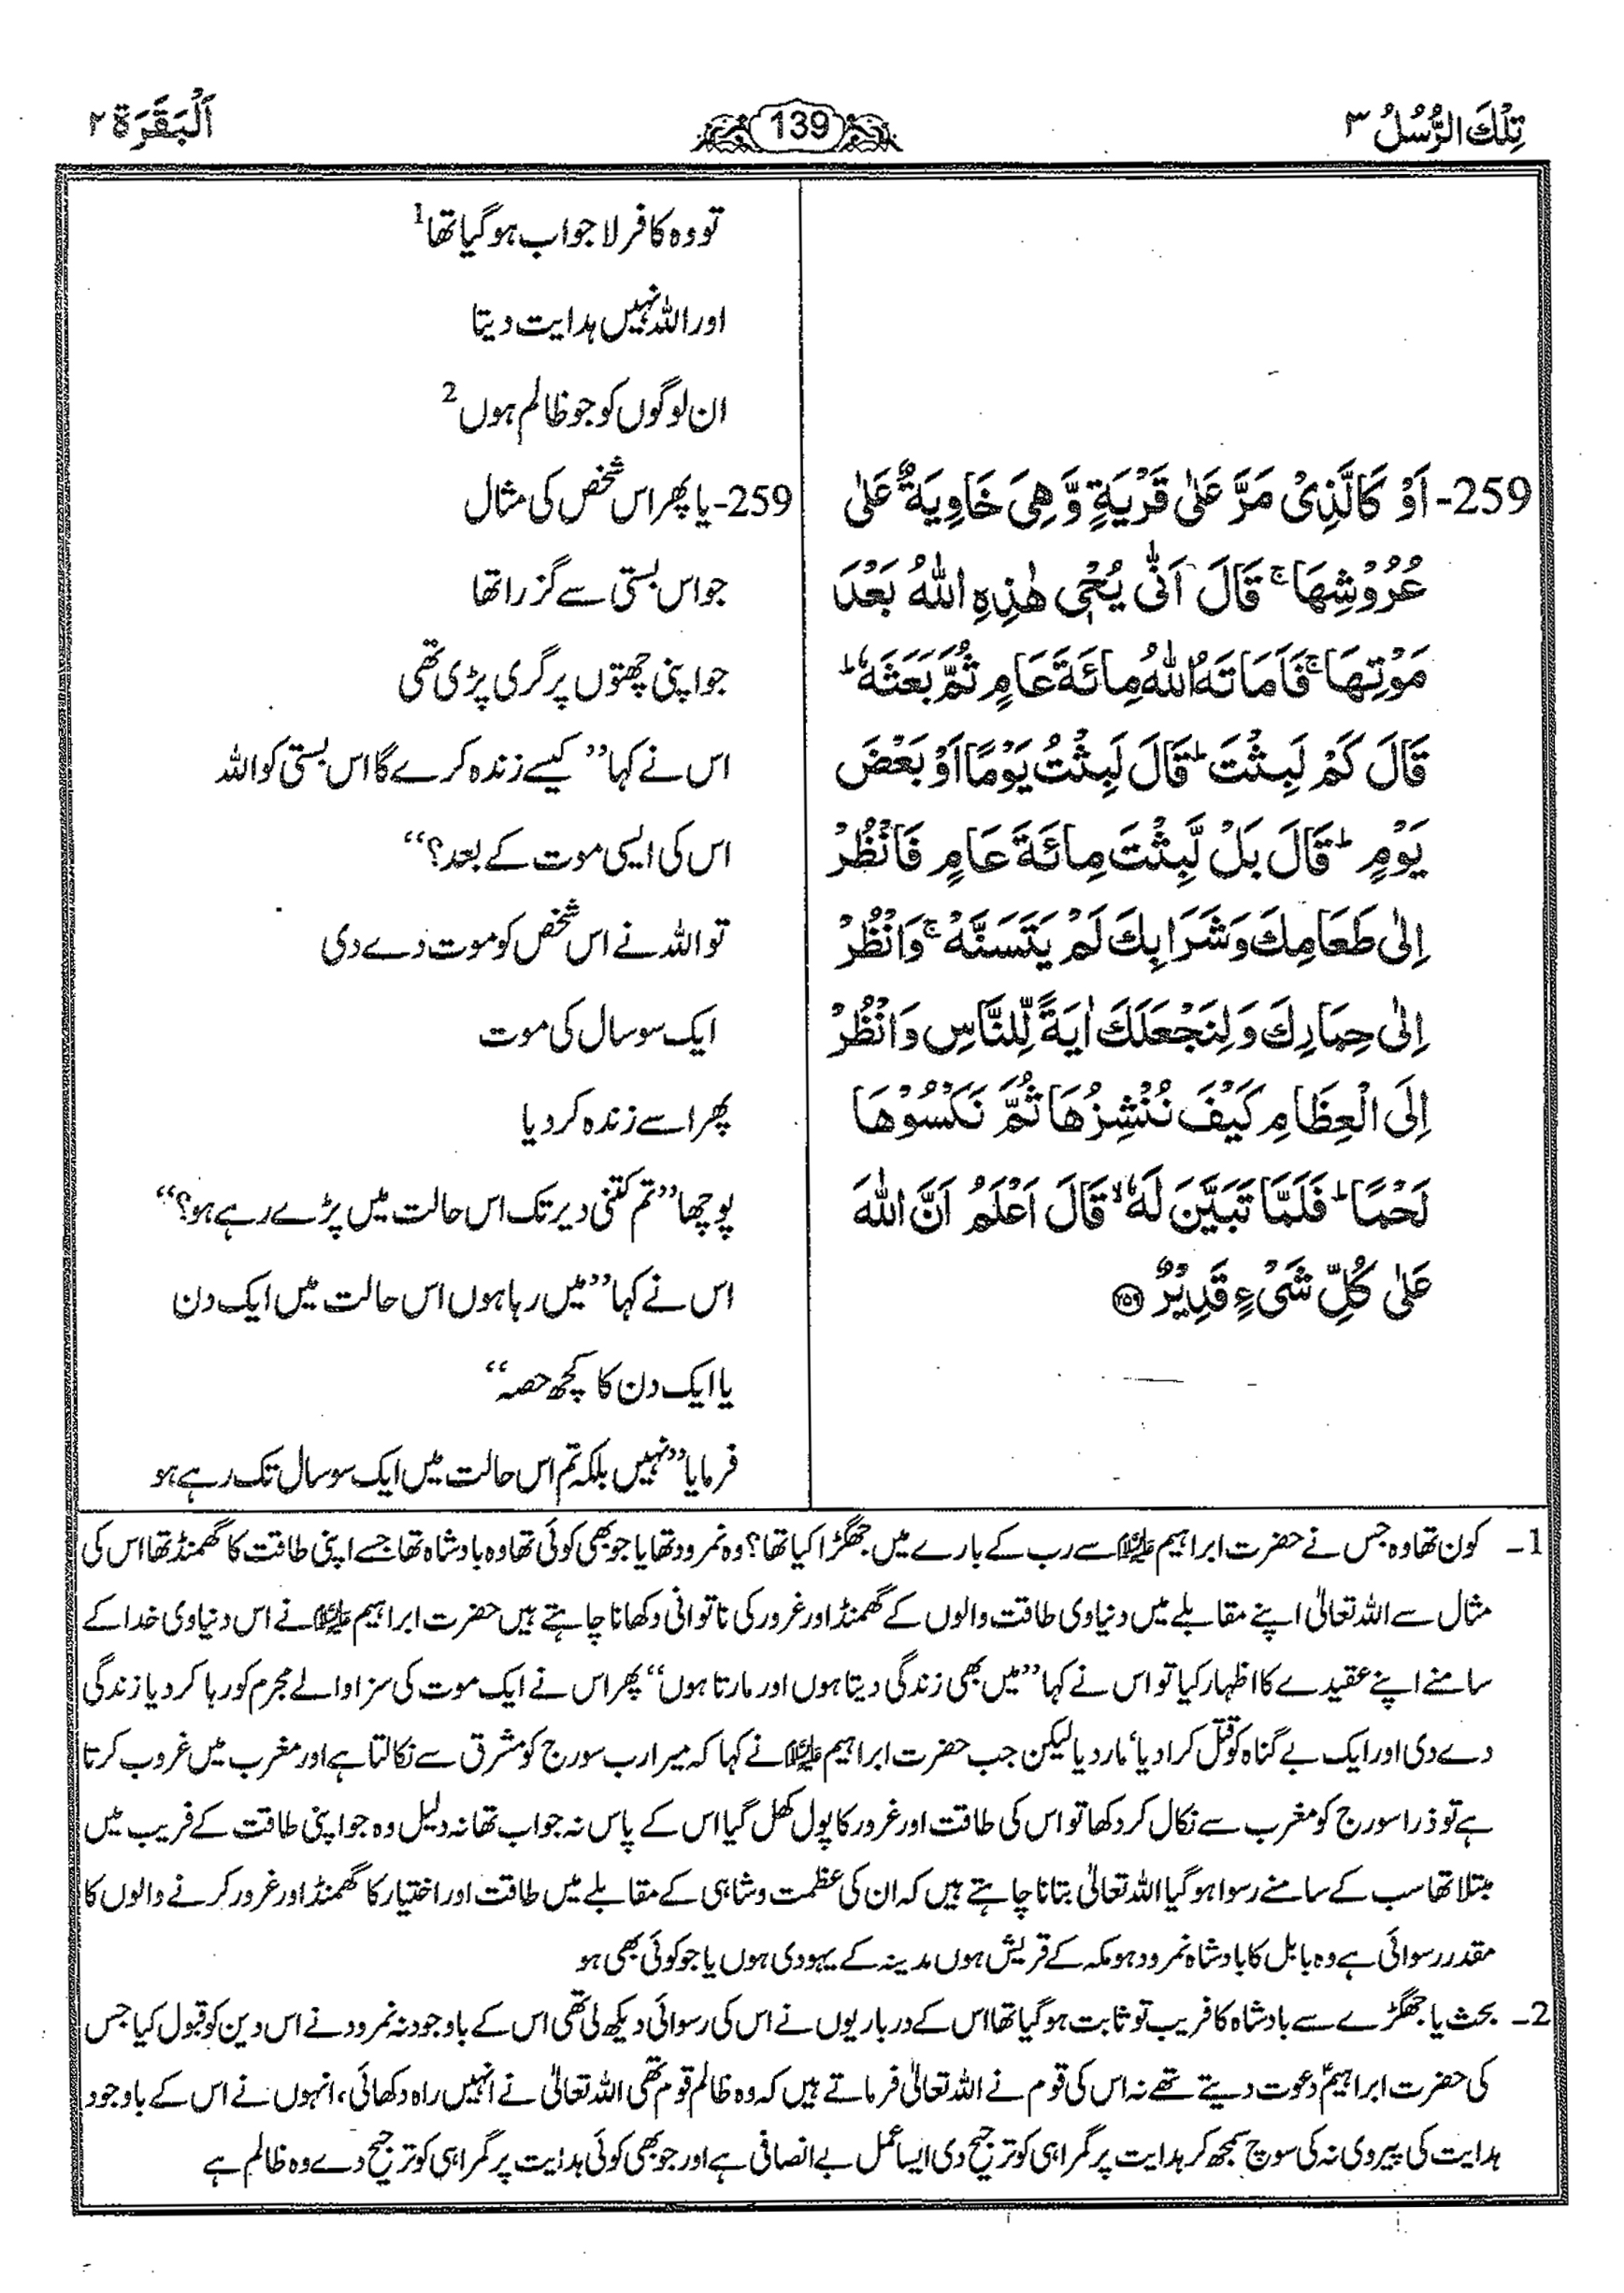 تِلْكَ الرُّسُلُ ۳
139
اَلْبَقَرَة ۲
259- اَوْ كَالَّذِیْ مَرَّ عَلٰی قَرْیَةٍ وَّ هِیَ خَاوِیَةٌ عَلٰی
عُرُوْشِهَا ۚ قَالَ اَنّٰی یُحْیٖ هٰذِهِ اللّٰهُ بَعْدَ
مَوْتِهَا ۚ فَاَمَاتَهُ اللّٰهُ مِائَةَ عَامٍ ثُمَّ بَعَثَهٗ ؕ
قَالَ كَمْ لَبِثْتَ ؕ قَالَ لَبِثْتُ یَوْمًا اَوْ بَعْضَ
یَوْمٍ ؕ قَالَ بَلْ لَّبِثْتَ مِائَةَ عَامٍ فَانْظُرْ
اِلٰی طَعَامِكَ وَ شَرَابِكَ لَمْ یَتَسَنَّهْ ۚ وَ انْظُرْ
اِلٰی حِمَارِكَ وَ لِنَجْعَلَكَ اٰیَةً لِّلنَّاسِ وَ انْظُرْ
اِلَی الْعِظَامِ كَیْفَ نُنْشِزُهَا ثُمَّ نَكْسُوْهَا
لَحْمًا ؕ فَلَمَّا تَبَیَّنَ لَهٗ ۙ قَالَ اَعْلَمُ اَنَّ اللّٰهَ
عَلٰی كُلِّ شَیْءٍ قَدِیْرٌ ﴿۲۵۹﴾
تو وہ کافر لاجواب ہو گیا تھا1
اور اللہ نہیں ہدایت دیتا
ان لوگوں کو جو ظالم ہوں2
259- یا پھر اس شخص کی مثال
جو اس بستی سے گزرا تھا
جو اپنی چھتوں پر گری پڑی تھی
اس نے کہا ’’کیسے زندہ کرے گا اس بستی کو اللہ
اس کی ایسی موت کے بعد؟‘‘
تو اللہ نے اس شخص کو موت دے دی
ایک سو سال کی موت
پھر اسے زندہ کر دیا
پوچھا ’’تم کتنی دیر تک اس حالت میں پڑے رہے ہو؟‘‘
اس نے کہا ’’میں رہا ہوں اس حالت میں ایک دن
یا ایک دن کا کچھ حصہ‘‘
فرمایا ’’نہیں بلکہ تم اس حالت میں ایک سو سال تک رہے ہو
1۔ کون تھا وہ جس نے حضرت ابراہیم علیہ السلام سے رب کے بارے میں جھگڑا کیا تھا؟ وہ نمرود تھا یا جو بھی کوئی تھا وہ بادشاہ تھا جسے اپنی طاقت کا گھمنڈ تھا اس کی
مثال سے اللہ تعالیٰ اپنے مقابلے میں دنیاوی طاقت والوں کے گھمنڈ اور غرور کی ناتوانی دکھانا چاہتے ہیں حضرت ابراہیم علیہ السلام نے اس دنیاوی خدا کے
سامنے اپنے عقیدے کا اظہار کیا تو اس نے کہا ’’میں بھی زندگی دیتا ہوں اور مارتا ہوں‘‘ پھر اس نے ایک موت کی سزا والے مجرم کو رہا کر دیا زندگی
دے دی اور ایک بے گناہ کو قتل کرا دیا‘ مار دیا لیکن جب حضرت ابراہیم علیہ السلام نے کہا کہ میرا رب سورج کو مشرق سے نکالتا ہے اور مغرب میں غروب کرتا
ہے تو ذرا سورج کو مغرب سے نکال کر دکھا تو اس کی طاقت اور غرور کا پول کھل گیا اس کے پاس نہ جواب تھا نہ دلیل وہ جو اپنی طاقت کے فریب میں
مبتلا تھا سب کے سامنے رسوا ہو گیا اللہ تعالیٰ بتانا چاہتے ہیں کہ ان کی عظمت و شاہی کے مقابلے میں طاقت اور اختیار کا گھمنڈ اور غرور کرنے والوں کا
مقدر رسوائی ہے وہ بابل کا بادشاہ نمرود ہو مکہ کے قریش ہوں مدینہ کے یہودی ہوں یا جو کوئی بھی ہو
2۔ بحث یا جھگڑے سے بادشاہ کا فریب تو ثابت ہو گیا تھا اس کے درباریوں نے اس کی رسوائی دیکھ لی تھی اس کے باوجود نہ نمرود نے اس دین کو قبول کیا جس
کی حضرت ابراہیمؑ دعوت دیتے تھے نہ اس کی قوم نے اللہ تعالیٰ فرماتے ہیں کہ وہ ظالم قوم تھی اللہ تعالیٰ نے انہیں راہ دکھائی، انہوں نے اس کے باوجود
ہدایت کی پیروی نہ کی سوچ سمجھ کر ہدایت پر گمراہی کو ترجیح دی ایسا عمل بے انصافی ہے اور جو بھی کوئی ہدایت پر گمراہی کو ترجیح دے وہ ظالم ہے